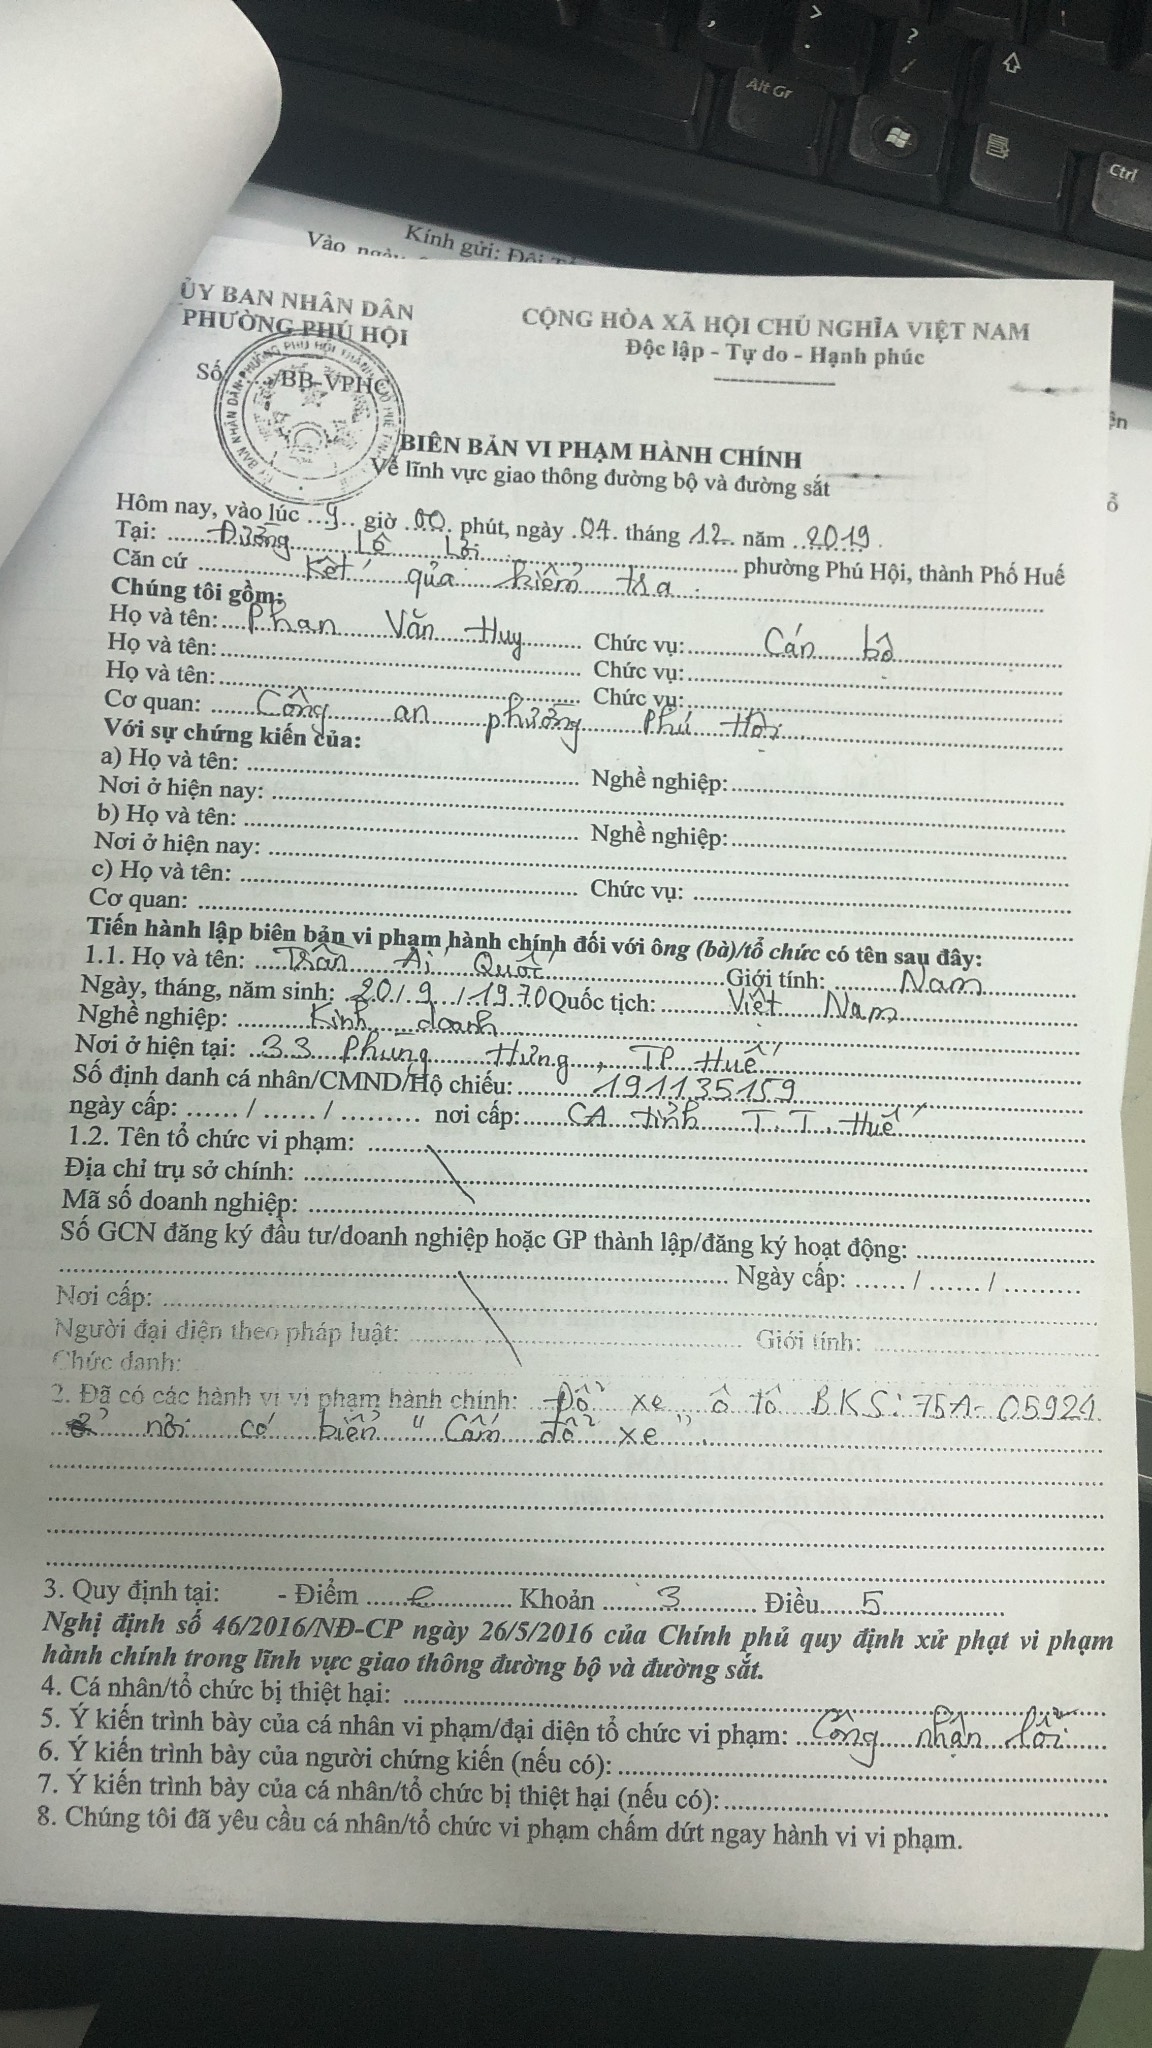 Alt Gr
Ctrl
Kính gửi: Đội
Vào ngày
ỦY BAN NHÂN DÂN
PHƯỜNG PHÚ HỘI
CỘNG HÒA XÃ HỘI CHỦ NGHĨA VIỆT NAM
Độc lập - Tự do - Hạnh phúc
Số: ....../BB-VPHC
BIÊN BẢN VI PHẠM HÀNH CHÍNH
Về lĩnh vực giao thông đường bộ và đường sắt
Hôm nay, vào lúc ..9.. giờ .00. phút, ngày .04. tháng 12.. năm ..2019.
Tại: ....Đường Lê Lợi.... phường Phú Hội, thành Phố Huế
Căn cứ ....Kết quả kiểm tra....
Chúng tôi gồm:
Họ và tên:...Phan Văn Huy... Chức vụ:....Cán bộ....
Họ và tên:........ Chức vụ:........
Họ và tên:........ Chức vụ:........
Cơ quan: ....Công an phường Phú Hội....
Với sự chứng kiến của:
a) Họ và tên: ........ Nghề nghiệp:........
Nơi ở hiện nay: ........
b) Họ và tên: ........ Nghề nghiệp:........
Nơi ở hiện nay: ........
c) Họ và tên: ........ Chức vụ: ........
Cơ quan: ........
Tiến hành lập biên bản vi phạm hành chính đối với ông (bà)/tổ chức có tên sau đây:
1.1. Họ và tên: ....Trần Ái Quốc....Giới tính: ....Nam....
Ngày, tháng, năm sinh: .20./.9.../.1970 Quốc tịch:....Việt Nam....
Nghề nghiệp: ....Kinh doanh....
Nơi ở hiện tại: ..33 Phùng Hưng, TP Huế....
Số định danh cá nhân/CMND/Hộ chiếu:....191135159....
ngày cấp: ...... / ...... / ......... nơi cấp:....CA tỉnh T.T.Huế....
1.2. Tên tổ chức vi phạm: ........
Địa chỉ trụ sở chính: ........
Mã số doanh nghiệp: ........
Số GCN đăng ký đầu tư/doanh nghiệp hoặc GP thành lập/đăng ký hoạt động: ........
........ Ngày cấp: ...... / ...... / .........
Nơi cấp: ........
Người đại diện theo pháp luật: ........ Giới tính: ........
Chức danh:
2. Đã có các hành vi vi phạm hành chính: ..Đỗ xe ô tô BKS: 75A-05924
ở nơi có biển "Cấm đỗ xe".
3. Quy định tại: - Điểm ....e.... Khoản ....3.... Điều....5....
Nghị định số 46/2016/NĐ-CP ngày 26/5/2016 của Chính phủ quy định xử phạt vi phạm
hành chính trong lĩnh vực giao thông đường bộ và đường sắt.
4. Cá nhân/tổ chức bị thiệt hại: ........
5. Ý kiến trình bày của cá nhân vi phạm/đại diện tổ chức vi phạm: ..Công nhận lỗi..
6. Ý kiến trình bày của người chứng kiến (nếu có):........
7. Ý kiến trình bày của cá nhân/tổ chức bị thiệt hại (nếu có):........
8. Chúng tôi đã yêu cầu cá nhân/tổ chức vi phạm chấm dứt ngay hành vi vi phạm.